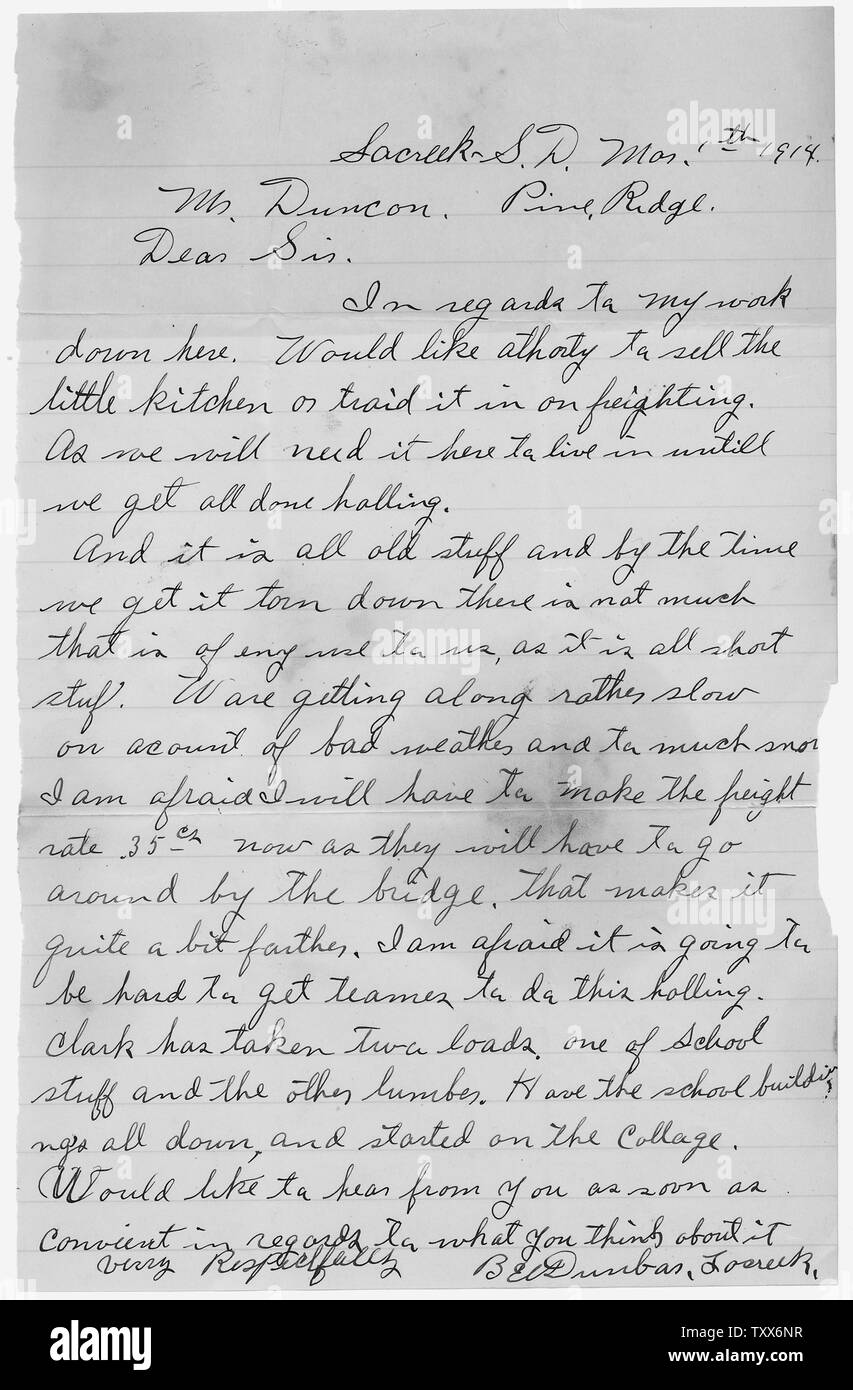 Lacreek S. D. Mar. 1th 1914.
Mr. Duncan. Pine, Ridge.
Dear Sir.
In regards to my work
down here. Would like athorty to sell the
little kitchen or traid it in on freighting.
As we will need it here to live in untill
we get all done halling.
And it is all old stuff and by the time
we get it torn down there is not much
that is of eny use to us, as it is all short
stuf. W are getting along rather slow
on acount of bad weather and to much snow
I am afraid I will have to make the freight
rate .35 cts now as they will have to go
around by the bridge. that makes it
quite a bit farther. I am afraid it is going to
be hard to get teames to do this halling.
Clark has taken two loads. one of School
stuff and the other lumber. Have the school buildin
ngs all down, and started on the Collage.
Would like to hear from you as soon as
convient in regards to what you think about it
verry Respectfully Dunbar, Lacreek.
alamy
Image ID: TXX6NR
www.alamy.com